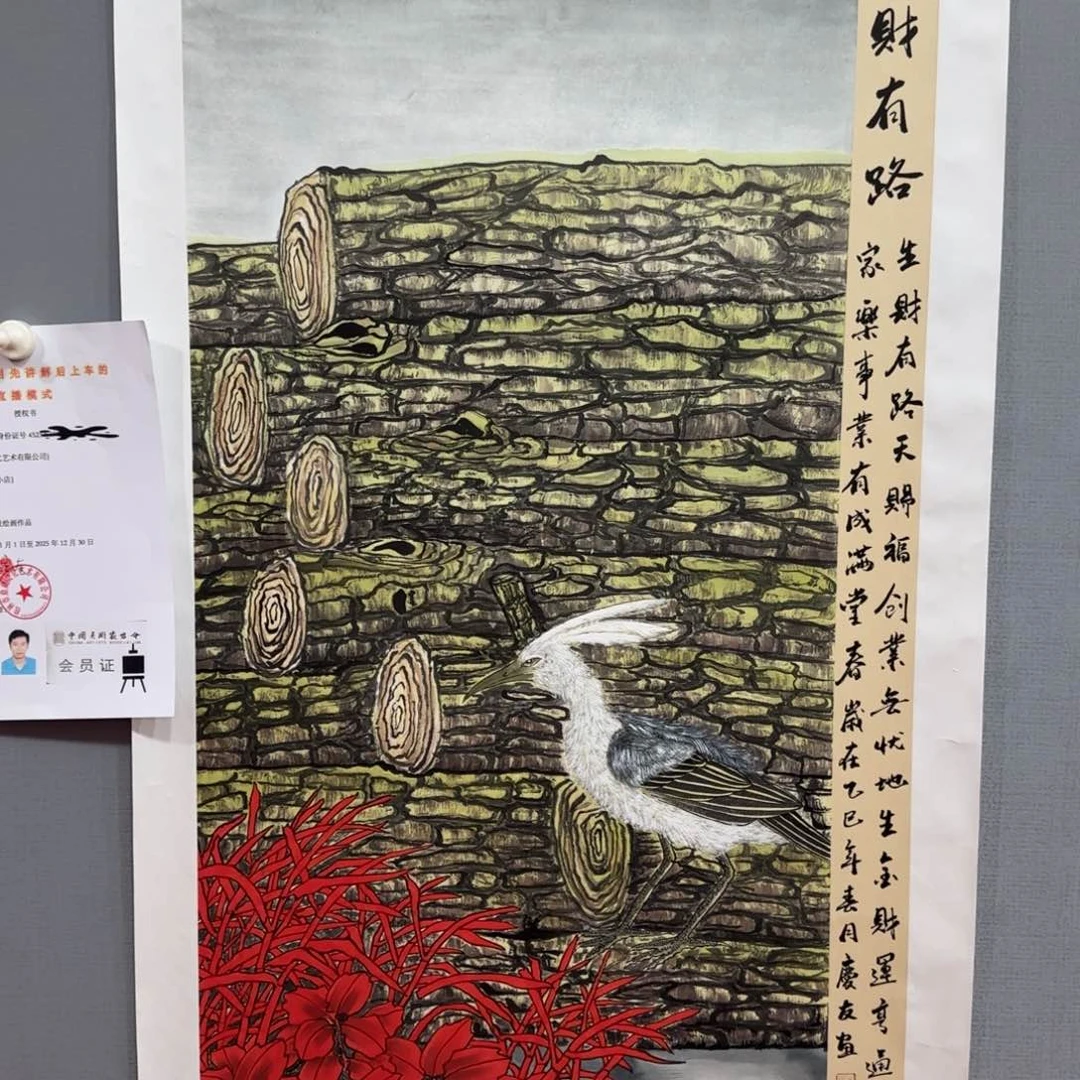 財有路
生財有路天賜福创業無忧地生金財運亨通
家樂事業有成滿堂春嵗在乙巳年春月慶友畫
先讲解后上车的
直播模式
授权书
身份证号 452
艺术有限公司)
小店)
绘画作品
月 1 日至 2025 年 12 月 30 日
会员证